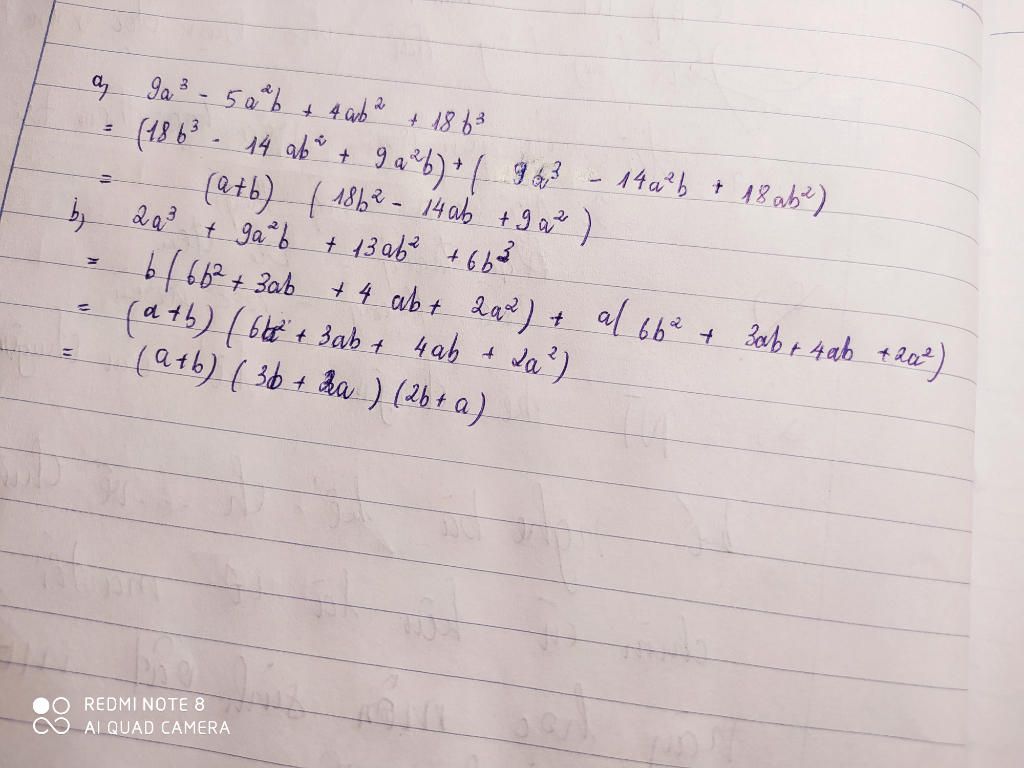 a, 9a³ - 5a²b + 4ab² + 18b³
= (18b³ - 14 ab² + 9a²b) + ( 9a³ - 14a²b + 18ab²)
= (a+b) (18b² - 14ab + 9a²)
b, 2a³ + 9a²b + 13ab² + 6b³
= b(6b² + 3ab + 4 ab + 2a²) + a(6b² + 3ab + 4ab + 2a²)
= (a+b) (6b² + 3ab + 4ab + 2a²)
= (a+b) (3b + 2a) (2b + a)
REDMI NOTE 8
AI QUAD CAMERA